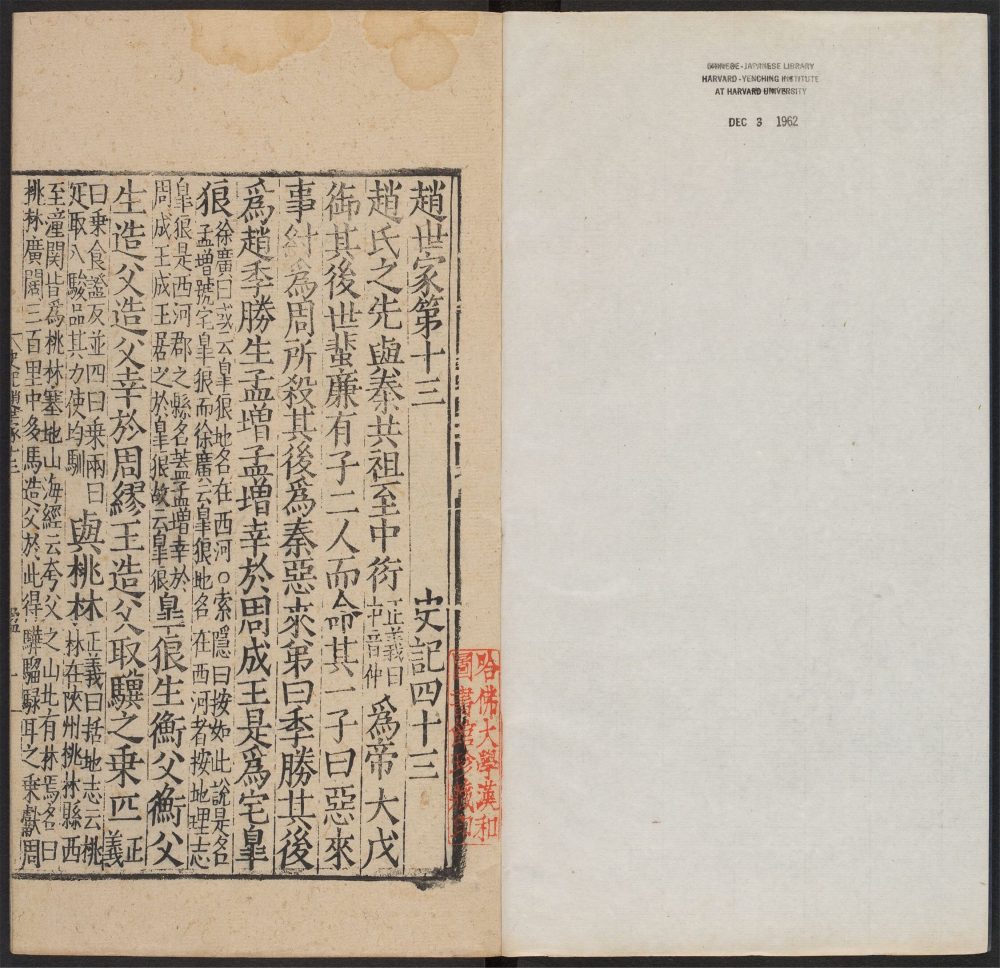 CHINESE-JAPANESE LIBRARY
HARVARD-YENCHING INSTITUTE
AT HARVARD UNIVERSITY
DEC 3 1962
趙世家第十三 史記四十三
哈佛大學漢和
圖書館珍藏印
趙氏之先與秦共祖至中衍正義曰中音仲爲帝大戊
御其後世蜚廉有子二人而命其一子曰惡來
事紂爲周所殺其後爲秦惡來弟曰季勝其後
爲趙季勝生孟增孟增幸於周成王是爲宅臯
狼徐廣曰或云臯狼地名在西河○索隱曰按如此說是名孟增號宅臯狼而徐廣云臯狼地名在西河者按地理志
臯狼是西河郡之縣名蓋孟增幸於周成王成王居之於臯狼故云臯狼臯狼生衡父衡父
生造父造父幸於周繆王造父取驥之乗匹正義
曰乗食證反並四曰乗兩曰匹取八駿品其力使均馴與桃林正義曰括地志云桃林在陝州桃林縣西
至潼關皆爲桃林塞地山海經云夸父之山北有林焉名曰桃林廣闊三百里中多馬造父於此得驊騮騄耳之乗獻周